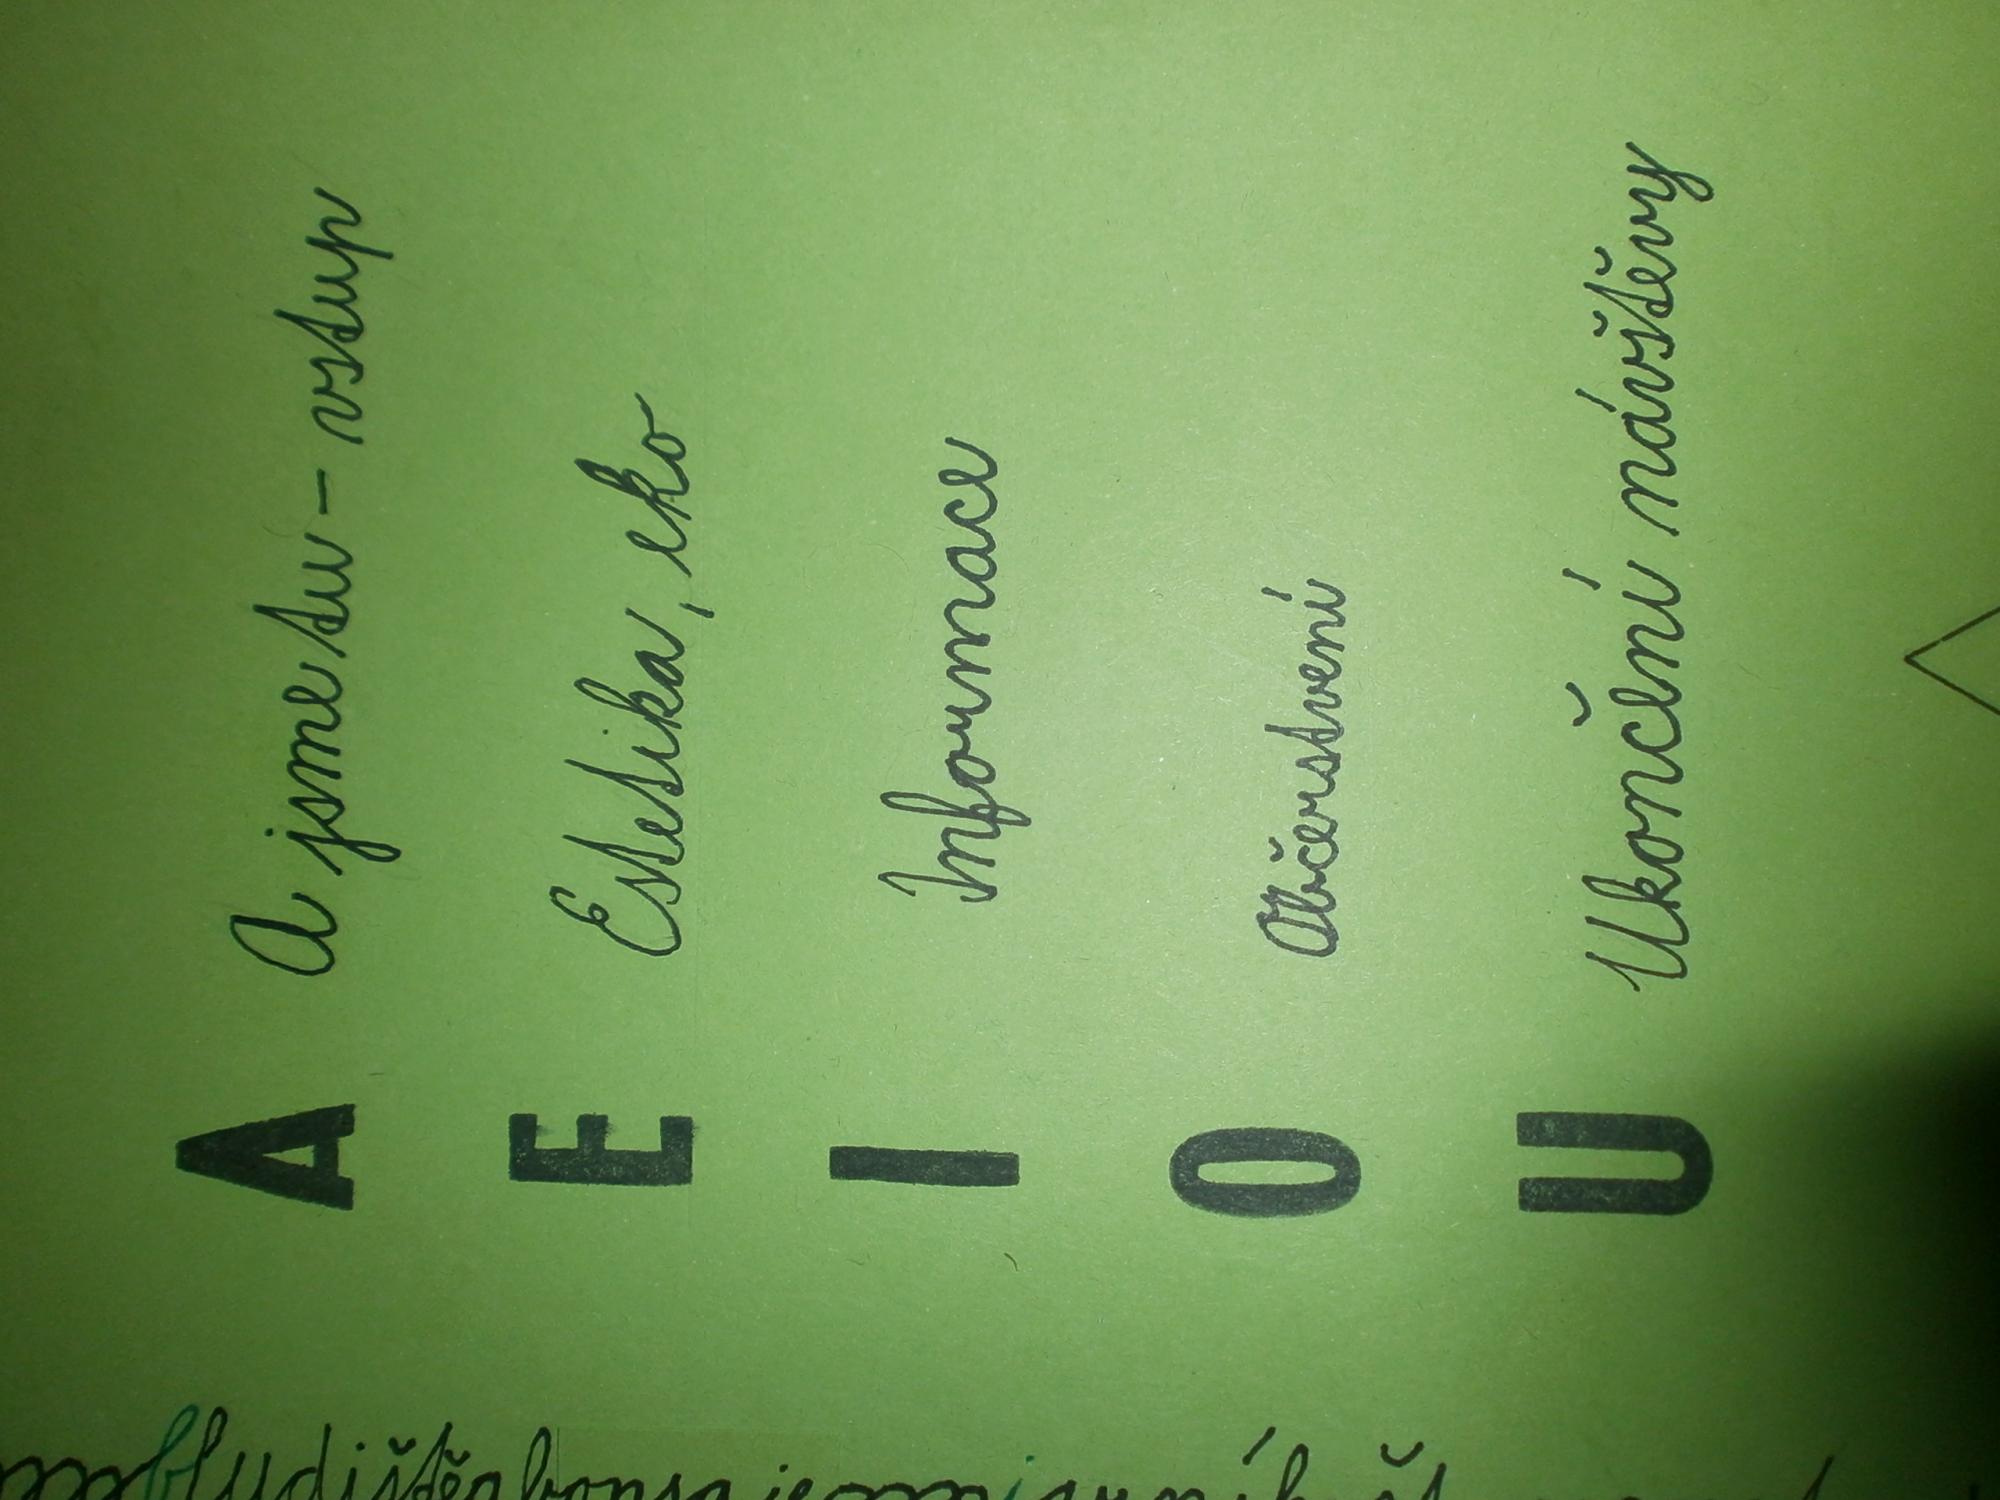 A A jsme tu - vstup
E Estetika, eko
I Informace
O Občerstvení
U Ukončení návštěvy
bludiště